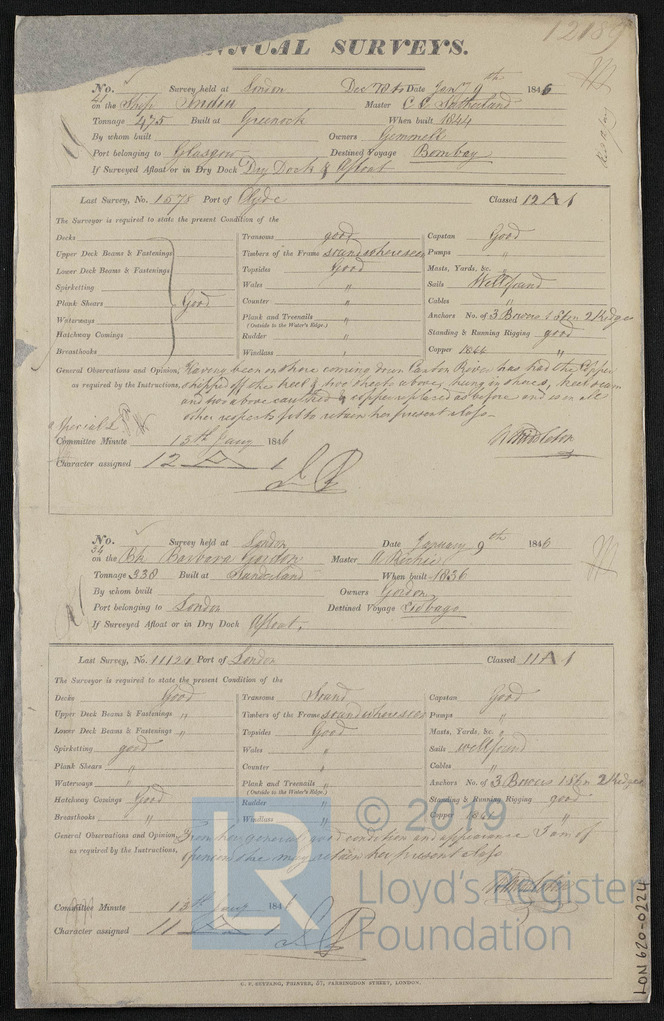 12189
ANNUAL SURVEYS.
No. Survey held at London Dec 30 to Date Jany 9th 1846
on the Ship Master C C Sutherland
Tonnage 475 Built at Greenock When built 1844
By whom built Owners Gemmell
Port belonging to Glasgow Destined Voyage Bombay
If Surveyed Afloat or in Dry Dock Dry Dock & Afloat
Last Survey, No. 1578 Port of Clyde Classed 12 A 1
The Surveyor is required to state the present Condition of the
Decks Transoms good Capstan Good
Upper Deck Beams & Fastenings Timbers of the Frame sound where seen Pumps "
Lower Deck Beams & Fastenings Topsides Good Masts, Yards, &c. "
Spirketting Wales " Sails Well found
Plank Shears Good Counter " Cables "
Waterways Plank and Treenails " Anchors No. of 3 Bowers 1 Stm 2 Kedges
(Outside to the Water's Edge.)
Hatchway Comings Rudder " Standing & Running Rigging good
Breasthooks Windlass " Copper 1844 "
General Observations and Opinion, Having been on shore coming down Canton River has had the Copper
as required by the Instructions, stripped off the keel & two sheets above, hung in shores, keel seam
and two above caulked & copper replaced as before and is in all
other respects fit to retain her present Class-
Special
Committee Minute 13th Jany 1846
Character assigned 12 A 1
No. Survey held at London Date January 9th 1846
34
on the Bk Barbara Gordon Master
Tonnage 338 Built at Sunderland When built 1836
By whom built Owners Gordon
Port belonging to London Destined Voyage Tobago
If Surveyed Afloat or in Dry Dock Afloat.
Last Survey, No. 11124 Port of London Classed 11 A 1
The Surveyor is required to state the present Condition of the
Decks Good Transoms Sound Capstan Good
Upper Deck Beams & Fastenings " Timbers of the Frame sound where seen Pumps "
Lower Deck Beams & Fastenings " Topsides Good Masts, Yards, &c. "
Spirketting good Wales " Sails well found
Plank Shears " Counter " Cables "
Waterways " Plank and Treenails " Anchors No. of 3 Bowers 1 Stm 2 Kedges
(Outside to the Water's Edge.)
Hatchway Comings Good Rudder " Standing & Running Rigging good
Breasthooks " Windlass " Copper "
General Observations and Opinion, From her general good condition and appearance I am of
as required by the Instructions, opinion she may retain her present Class
Committee Minute 13th Jany 1846
Character assigned 11 A 1
LR
© 2019
Lloyd's Register
Foundation
LON 620-0224
PRINTER, 57, FARRINGDON STREET, LONDON.